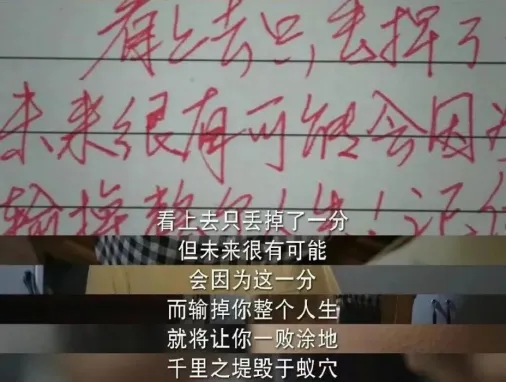 看上去只丢掉了
未来很有可能会因为
输掉整个人生！记住
看上去只丢掉了一分
但未来很有可能
会因为这一分
而输掉你整个人生
就将让你一败涂地
千里之堤毁于蚁穴
N